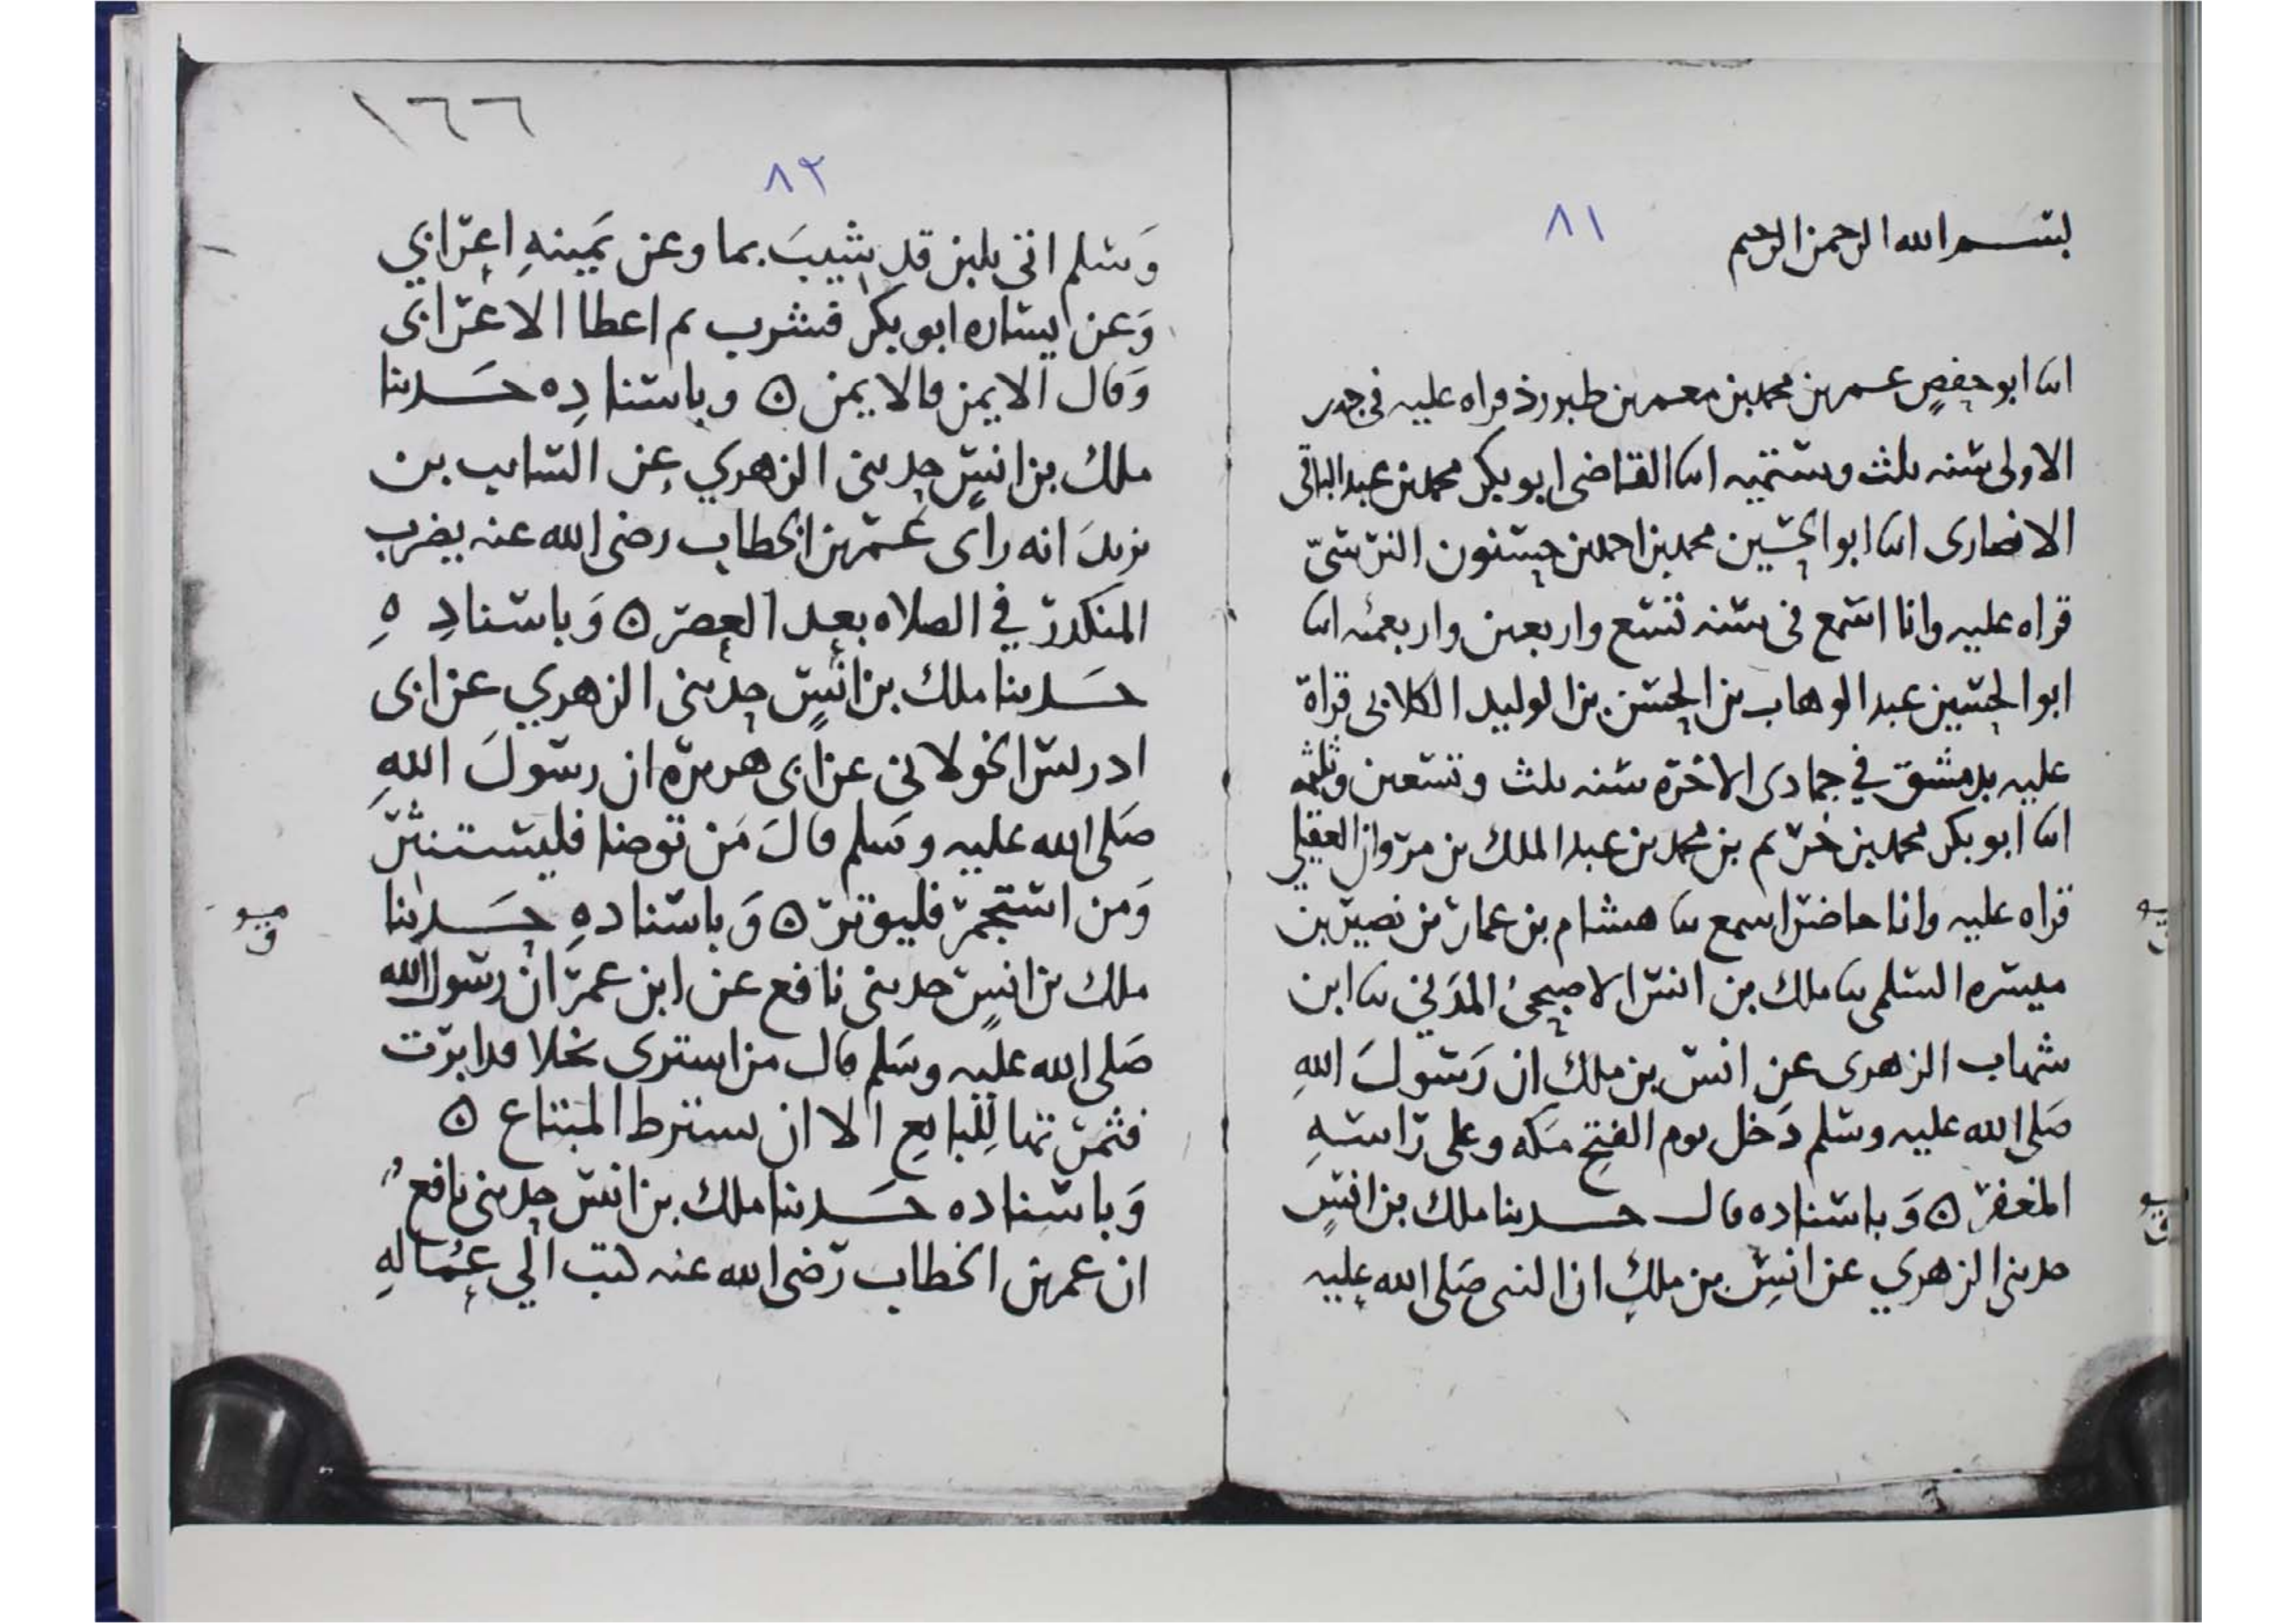 ٨١
بسم الله الرحمن الرحيم
انا ابو حفص عمر بن محمد بن معمر بن طبرزذ قراه عليه في جمدى
الاولى سنه ثلث وستميه انا القاضى ابو بكر محمد بن عبد الباقى
الانصارى انا ابو الحسين محمد بن احمد بن حسنون النرسيّ
قراه عليه وانا اسمع فى سنه تسع واربعين واربعمئه انا
ابو الحسين عبد الوهاب بن الحسن بن الوليد الكلابى قراة
عليه بدمشق في جمادى الاخره سنه ثلث وتسعين وثلثمه
انا ابو بكر محمد بن خريم بن محمد بن عبد الملك بن مروان العقيلي
قراه عليه وانا حاضر اسمع نا هشام بن عمار بن نصير بن
ميسره السلمى نا ملك بن انس الاصبحىُ المدَني نا ابن
شهاب الزهرى عن انس بن ملك ان رَسولَ اللهِ
صَلى الله عليه وسلم دَخل يوم الفتح مَكه وعلى رَاسهِ
المغفر ٥ وَباسناده قال حـدثنا ملك بن انسٍ
حدثنى الزهري عن انسِ بن ملكٍ ان النبى صَلى الله عليه
١٦٦
٨٢
وَسلم اتى بلبن قد شيبَ بما وعن يَمينهِ اعرَابي
وَعن يساره ابو بكر فشرب ثم اعطا الاعرابى
وَقال الايمن فالايمن ٥ وباسنادِه حَـدثنا
ملك بن انسٍ حدثنى الزهري عن السايب بن
يزيدَ انه راى عُمر بن الخطاب رضى الله عنه يضرب
المنكدر في الصلاه بعد العصر ٥ وَباسنادِهِ
حَـدثنا ملك بن انسٍ حدثنى الزهري عن ابى
ادريس الخولانى عن ابى هريره ان رسولَ اللهِ
صَلى الله عليه وسَلم قالَ مَن توضا فليستنثر
وَمن استجمر فليوتر ٥ وَباسنادهِ حَـدثنا
ملك بن انسٍ حدثنى نافع عن ابن عمر ان رسول الله
صَلى الله عليه وسَلم قال من اشترى نخلا قد ابرت
فثمرتها لِلبايعِ الا ان يشترط المبتاع ٥
وَباسناده حَـدثنا ملك بن انس حدثنى نافعٌ
ان عمر بن الخطاب رَضى الله عنه كتب الي عُمالهِ